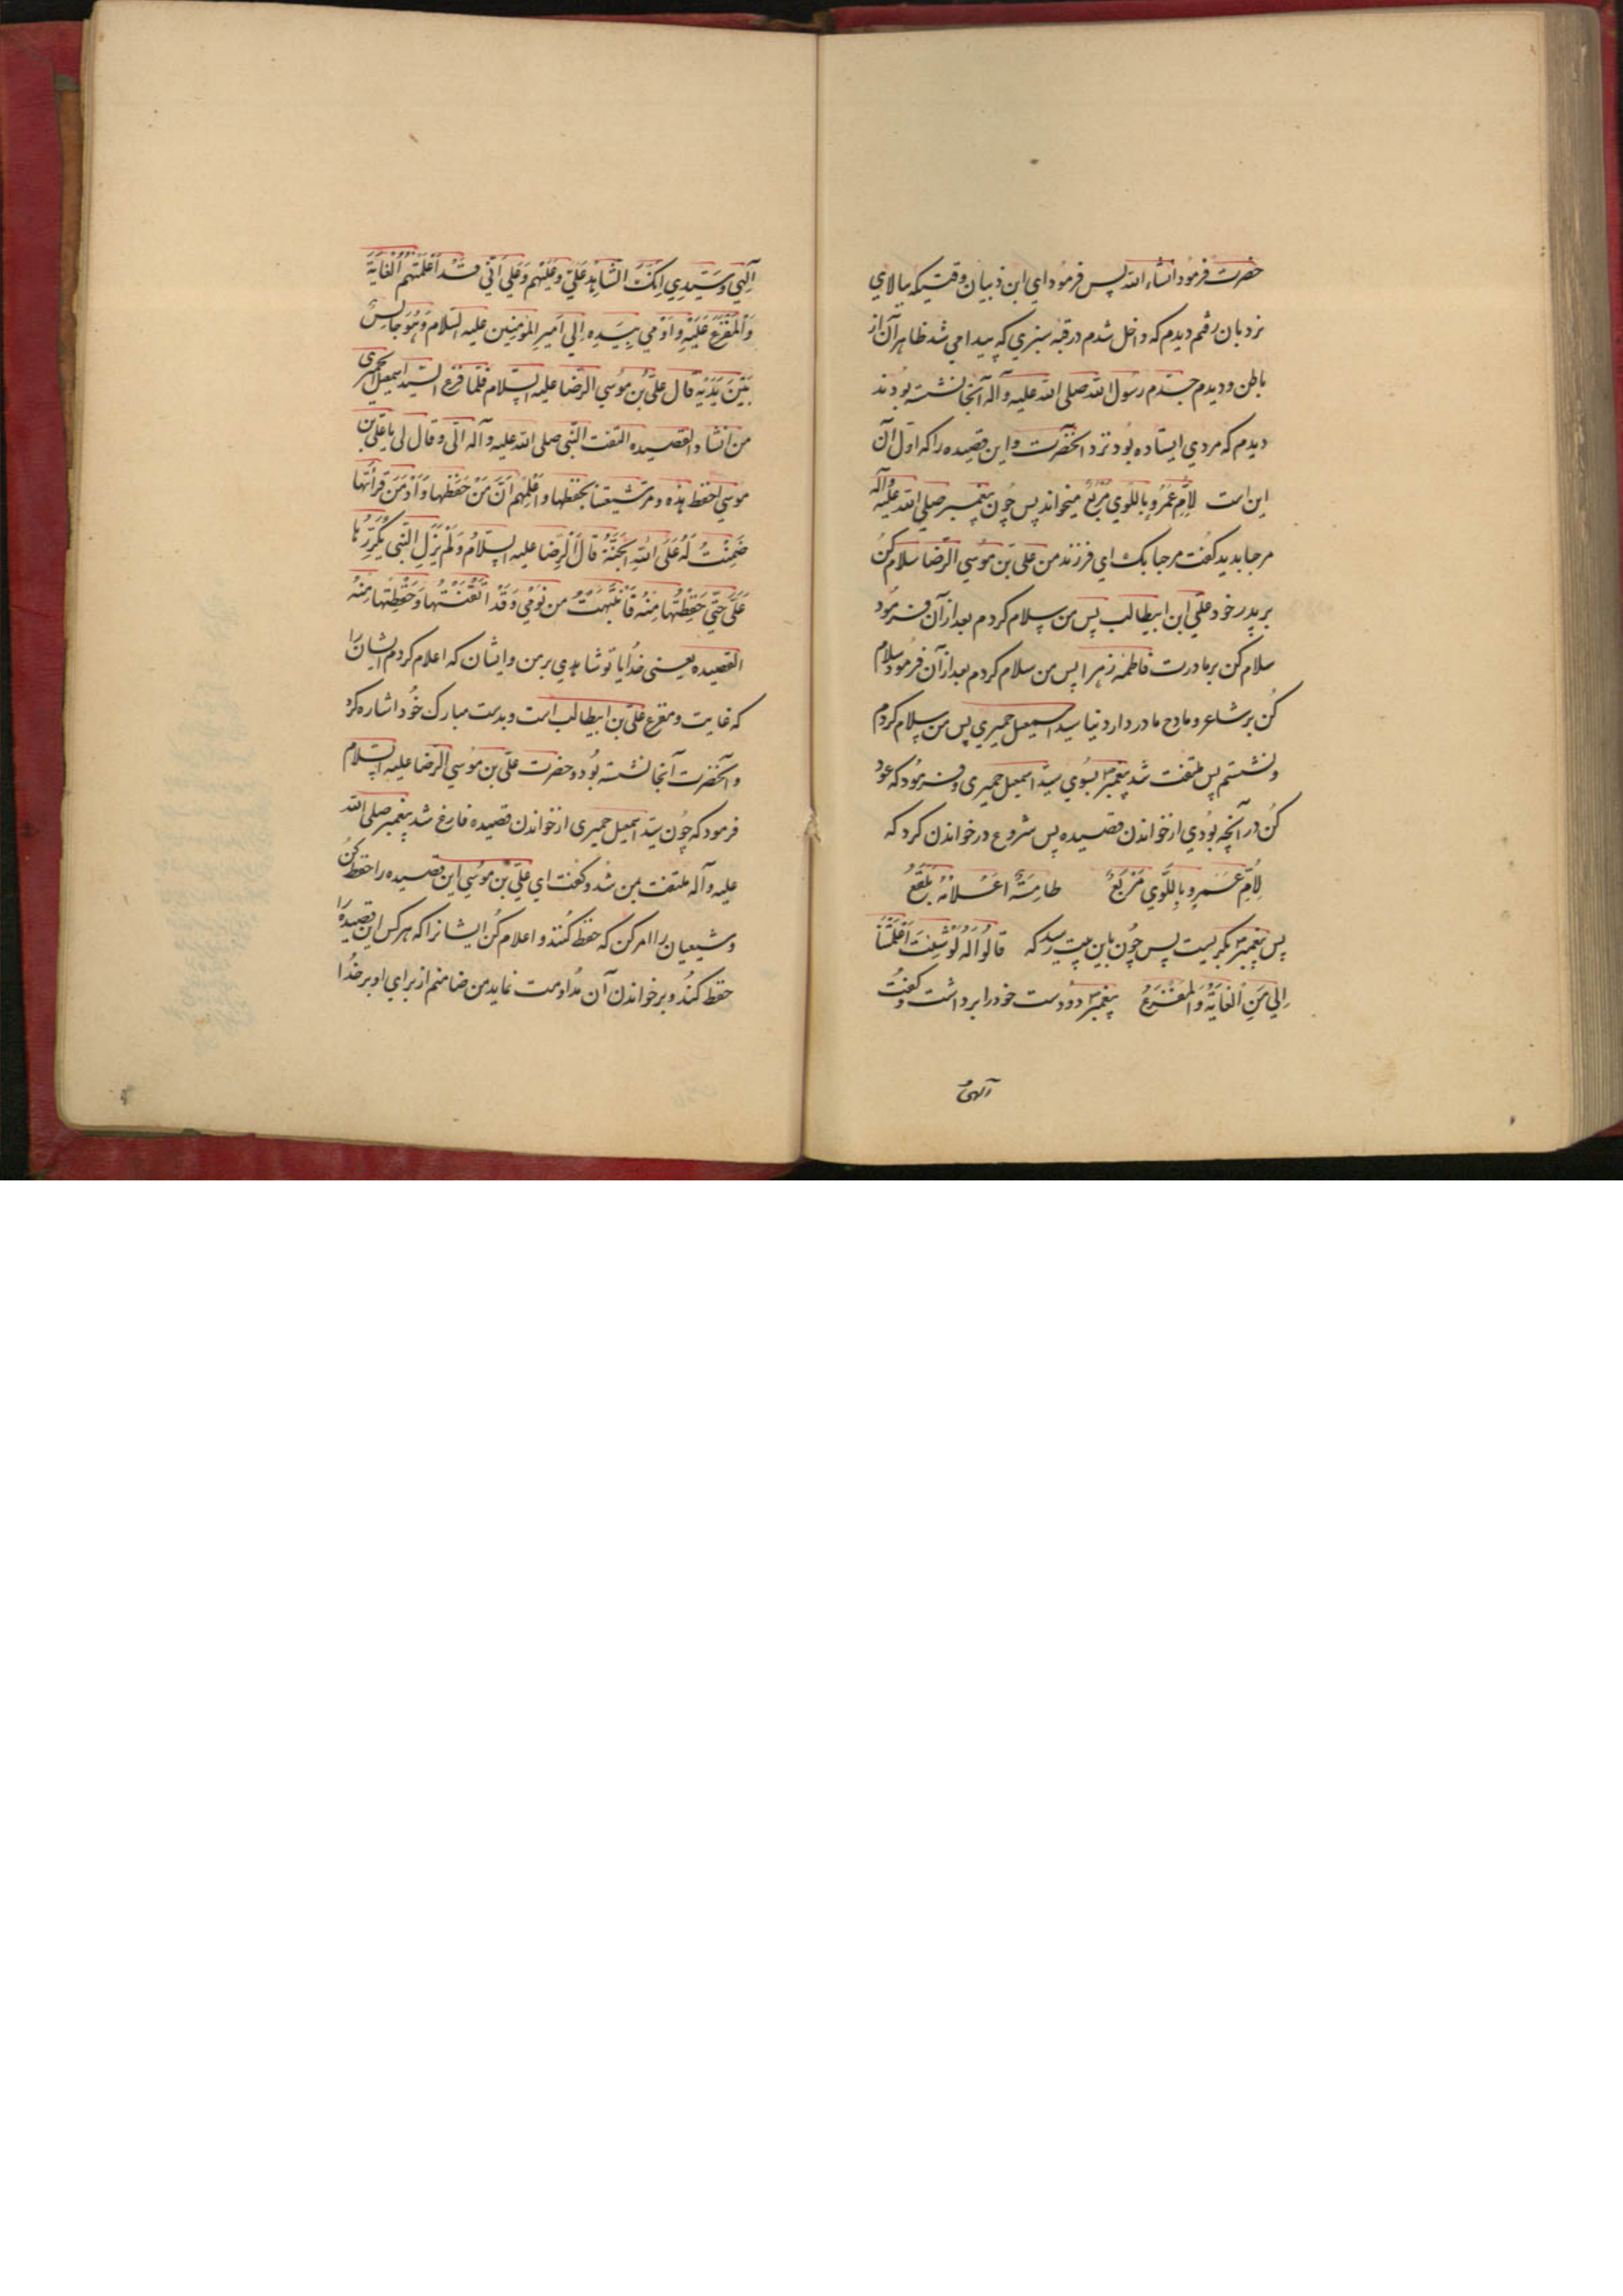 حضرت فرمود انشاء الله پس فرمود ای ابن ذبیان وقتیکه ببالای
نردبان رفتم دیدم که داخل شدم در قبه سبزی که پیدا می شد ظاهر آن از
باطن و دیدم جدم رسول الله صلی الله علیه و آله آنجا نشسته بودند
دیدم که مردی ایستاده بود نزد آنحضرت و این قصیده را که اول آن
این است لِاُمِّ عَمْرٍو بِاللَّوی مَرْبَعٌ میخواند پس چون پیغمبر صلی الله علیه و آله
مرا بدید گفت مرحبا بک ای فرزند من علی بن موسی الرضا سلام کن
بر پدر خود علی ابن ابیطالب پس من سلام کردم بعد از آن فرمود
سلام کن بر مادرت فاطمه زهرا پس من سلام کردم بعد از آن فرمود سلام
کن بر شاعر و مادح ما در دار دنیا سید اسمعیل حمیری پس من سلام کردم
و نشستم پس ملتفت شد پیغمبر بسوی سید اسمعیل حمیری و فرمود که عود
کن در آنچه بودی از خواندن قصیده پس شروع در خواندن کرد که
لِاُمِّ عَمْرٍو بِاللَّوی مَرْبَعٌ طامِسَةٌ اعْلامُهُ بَلْقَعُ
پس پیغمبر بگریست پس چون باین بیت رسید که قالُوا لَهُ لَوْ شِئْتَ اَعْلَمْتَنا
اِلی مَنِ الْغایَةُ وَالْمَفْزَعُ پیغمبر دو دست خود را برداشت و گفت
آلهی
اِلٰهی وَسَیِّدی اِنَّکَ الشّاهِدُ عَلَیَّ وَعَلَیْهِم وَعَلی اَنّی قَدْ اَعْلَمْتُهُم اَلْغایَةَ
وَالْمَفْزَعَ عَلَیْهِ وَاَوْمی بِیَدِه اِلی اَمیرِ المُؤمِنین علیه السلام وَهُوَ جالِسٌ
بَیْنَ یَدَیْهِ قال علیُّ بن موسی الرّضا علیه السلام فَلَمّا فَرَغَ السّید اسمعیل الحمیری
من انشاد القصیده التفت النّبی صلی الله علیه و آله الیَّ وقال لی یا علی بن
موسی احفظ هذه ومُر شیعتنا بحفظها واَعْلِمْهُم اَنَّ مَنْ حَفَظَها وَاَدْمَنَ قَرأتها
ضَمِنْتُ لَهُ عَلَی اللهِ الجَنَّة قال الرّضا علیه السلام وَلَم یَزَلِ النّبی یُکَرِّرُها
عَلَیَّ حَتّی حَفِظْتُها مِنْهُ فَانْتَبَهْتُ من نَومی وَقَدْ اَتْقَنْتُها وَحَفِظْتُها مِنْهُ
القصیده یعنی خدایا تو شاهدی بر من و ایشان که اعلام کردم ایشان را
که غایت و مفزع علی بن ابیطالب است و بدست مبارک خود اشاره کرد
و آنحضرت آنجا نشسته بود و حضرت علی بن موسی الرضا علیه السلام
فرمود که چون سید اسمعیل حمیری از خواندن قصیده فارغ شد پیغمبر صلی الله
علیه و آله ملتفت بمن شد و گفت ای علی بن موسی این قصیده را حفظ کن
و شیعیان را امر کن که حفظ کنند و اعلام کن ایشانرا که هر کس این قصیده را
حفظ کند و بر خواندن آن مداومت نماید من ضامنم از برای او بر خدا